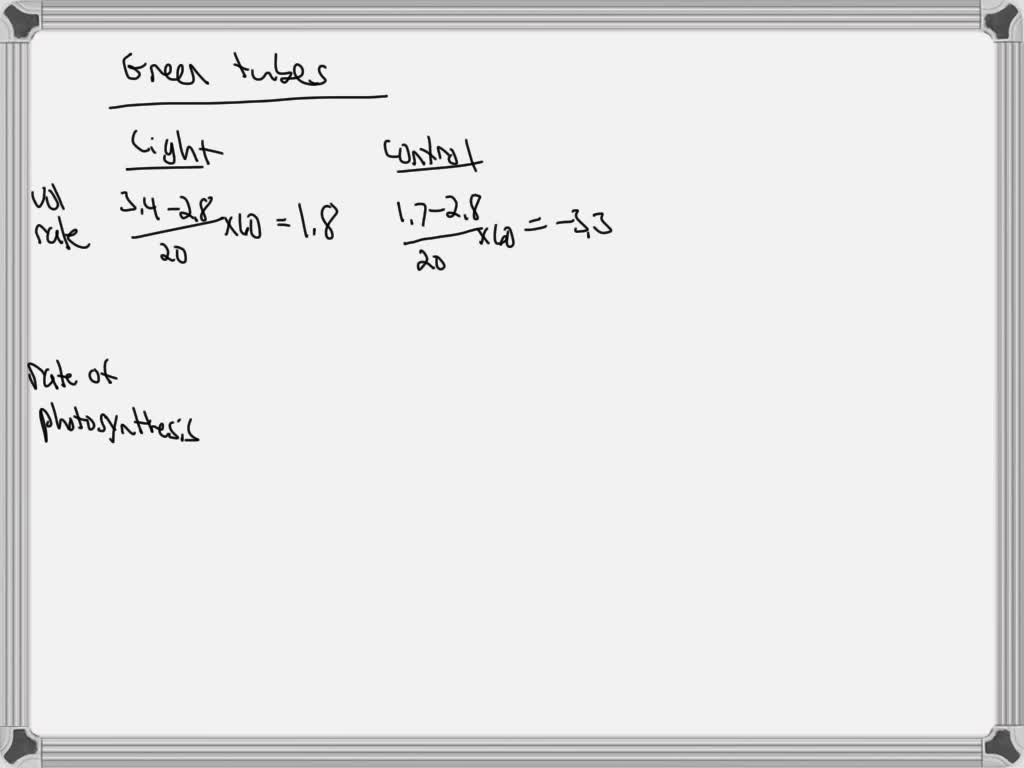 Green tubes
Light
control
vol
rate
3.4-2.8
20
x60 = 1.8
1.7-2.8
20
x60 = -3.3
rate of
photosynthesis